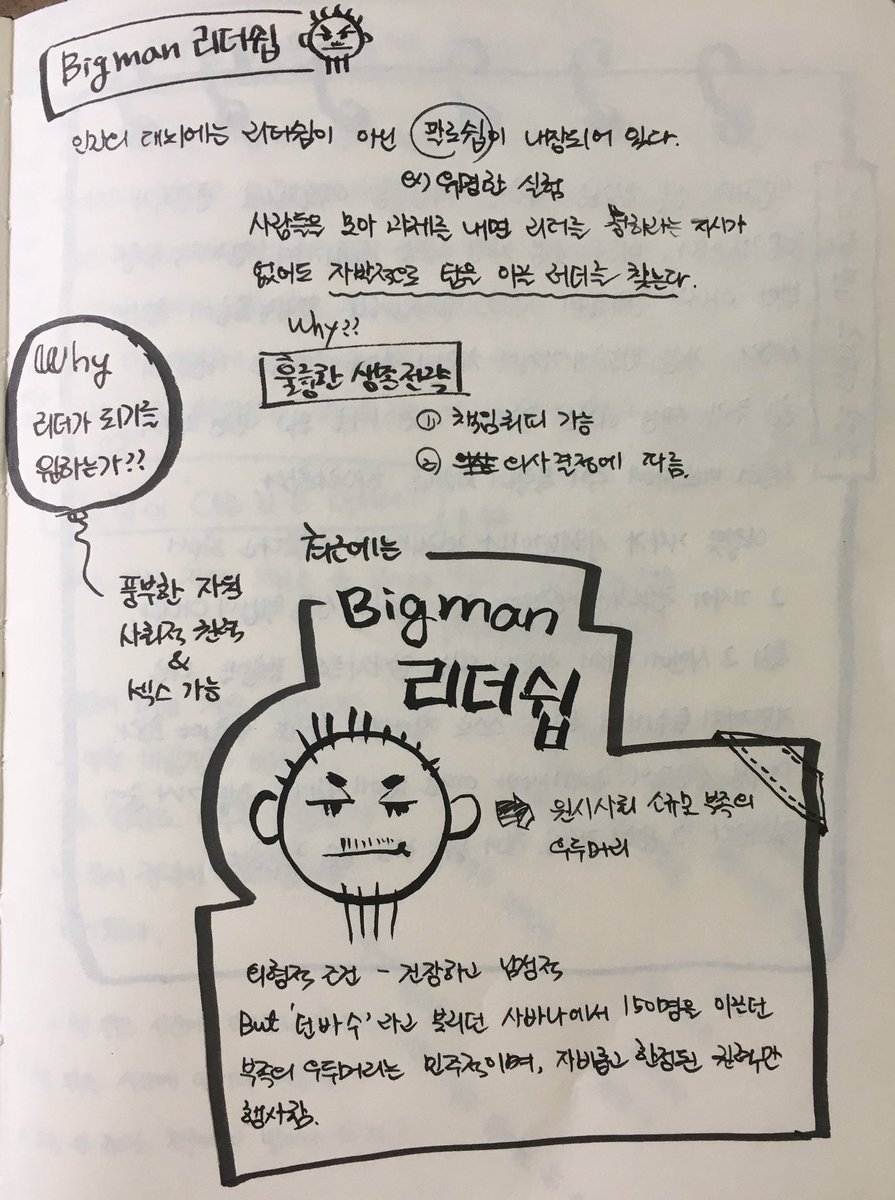 Bigman 리더쉽
인간의 대뇌에는 리더쉽이 아닌 팔로쉽이 내장되어 있다.
ex) 유명한 실험
사람들은 모아 과제를 내면 리더를 정하라는 지시가
없어도 자발적으로 팀을 이끌 리더를 찾는다.
Why??
훌륭한 생존전략
① 책임회피 가능
② 의사결정에 따름.
Why
리더가 되기를
원하는가??
풍부한 자원
사회적 찬탁
&
섹스 가능
최근에는
Bigman
리더쉽
원시사회 소규모 부족의
우두머리
티형적 조건 - 건장하고 남성적
But '던바 수'라고 불리던 사바나에서 150명을 이끈던
부족의 우두머리는 민주적이며, 자비롭고 한정된 권력만
행사함.